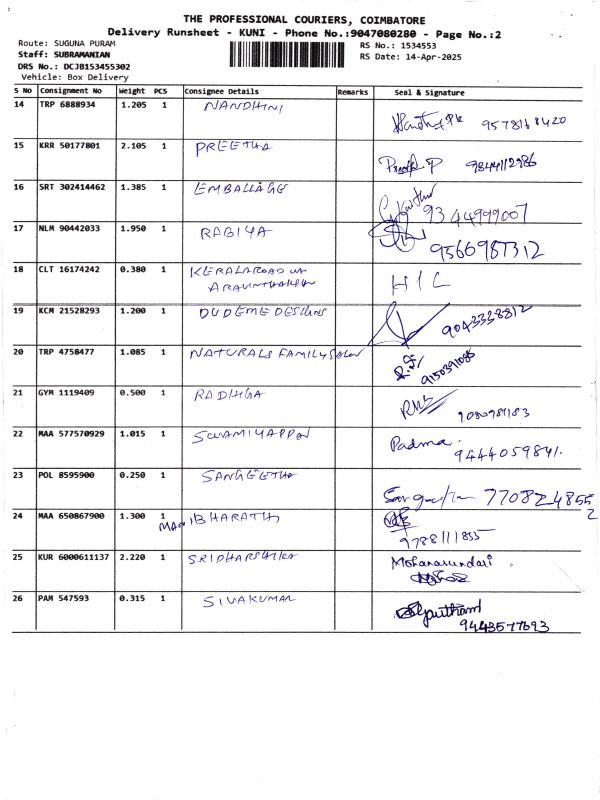 THE PROFESSIONAL COURIERS, COIMBATORE
Delivery Runsheet - KUNI - Phone No.:9047080280 - Page No.:2
Route: SUGUNA PURAM
RS No.: 1534553
Staff: SUBRAMANIAN
RS Date: 14-Apr-2025
DRS No.: DCJB153455302
Vehicle: Box Delivery
S No Consignment No Weight PCS Consignee Details Remarks Seal & Signature
14 TRP 6888934 1.205 1 NANDHINI
15 KRR 50177801 2.105 1 PREETHA 9844112986
16 SRT 302414462 1.385 1 EMBALLAGE 9344999007
17 NLM 90442033 1.950 1 RABIYA 9566987312
18 CLT 16174242 0.380 1 KERALAROAD HIL
19 KCM 21528293 1.200 1 DUDEME DESIGNS 9043338812
20 TRP 4758477 1.085 1 NATURALS FAMILY SALON 9150391085
21 GYM 1119409 0.500 1 RADHGA
22 MAA 577570929 1.015 1 SWAMIYAPPAN Padma. 9444059841.
23 POL 8595900 0.250 1 SANGEETHA 7708248552
24 MAA 650867900 1.300 1 BHARATH 9788111855
25 KUR 6000611137 2.220 1 Mohanasundari
26 PAM 547593 0.315 1 SIVAKUMAR 9443577693